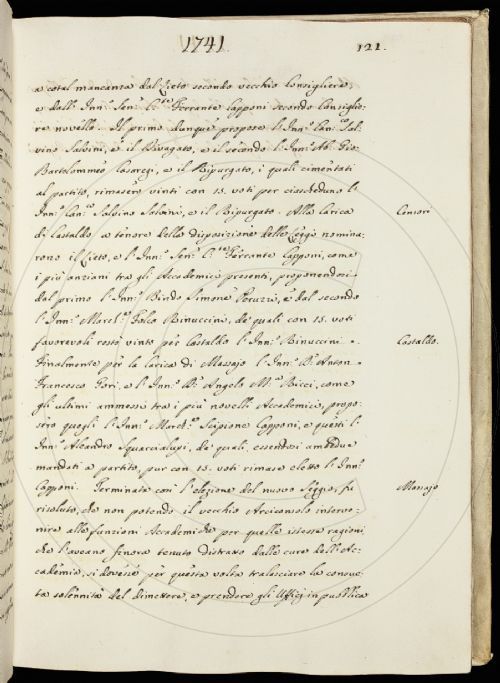 1741.
121.
a cotal mancanza dal Lieto secondo vecchio Consigliere,
e dall' Inn.º Sen.e C.re Ferrante Capponi secondo Consiglie-
re novello. Il primo dunque propose l'Inn.º Can.co Sal-
vino Salvini, e il Rivagato, e il secondo l'Inn.º Ab. Gio:
Bartolommeo Casaregi, e il Ripurgato, i quali cimentati
al partito, rimasero vinti con 15. voti per ciascheduno l'
Inn.º Can.co Salvino Salvini, e il Ripurgato. Alla Carica
Censori
di Castaldo a tenore della disposizione delle Leggi nomina-
rono il Lieto, e l'Inn.º Sen.e C.re Ferrante Capponi, come
i più anziani tra gli Accademici presenti, proponendosi
dal primo l'Inn.º Bindo Simone Peruzzi, e dal secondo
l'Inn.º March.e Folco Rinuccini, de quali con 15. voti
favorevoli restò vinto per Castaldo l'Inn.º Rinuccini.
Castaldo.
Finalmente per la Carica di Massajo l'Inn.º D. Anton
Francesco Gori, e l'Inn.º D. Angelo M.a Ricci, come
gli ultimi ammessi tra i più novelli Accademici, propo-
sero quegli l'Inn.º March.e Scipione Capponi, e questi l'
Inn.º Aleandro Squarcialupi, de quali, essendosi ambedue
mandati a partito, pur con 15. voti rimase eletto l'Inn.º
Capponi. Terminata con l'elezione del nuovo Seggio, fu
Massajo
risoluto, che non potendo il vecchio Arciconsolo interve-
nire alle funzioni Accademiche per quelle istesse ragioni,
che l'aveano finora tenuto distratto dalle cure dell'Ac-
cademia, si dovesse per questa volta tralasciare la consue-
ta solennità del dimettere, e prendere gli Uffizj in pubblica